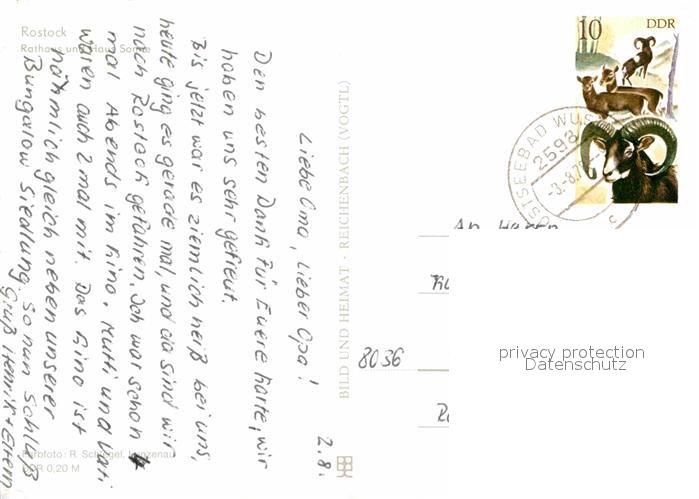 Rostock
Rathaus und Haus Sonne
2.8.
Liebe Oma, Lieber Opa!
Den besten Dank für Euere Karte, wir
haben uns sehr gefreut.
Bis jetzt war es ziemlich heiß bei uns,
heute ging es gerade mal, und da sind wir
nach Rostock gefahren. Ich war schon 4
mal Abends im Kino. Mutti und Vati
waren auch 2 mal mit. Das Kino ist
nähmlich gleich neben unserer
Bungalow Siedlung. So nun Schluß
Gruß Henrik + Eltern
Farbfoto: R. Schlegel, Lunzenau
DDR 0,20 M
BILD UND HEIMAT · REICHENBACH (VOGTL)
10 DDR
OSTSEEBAD WUS
2598
-3.-8.7
c
An Herrn
8036
privacy protection
Datenschutz